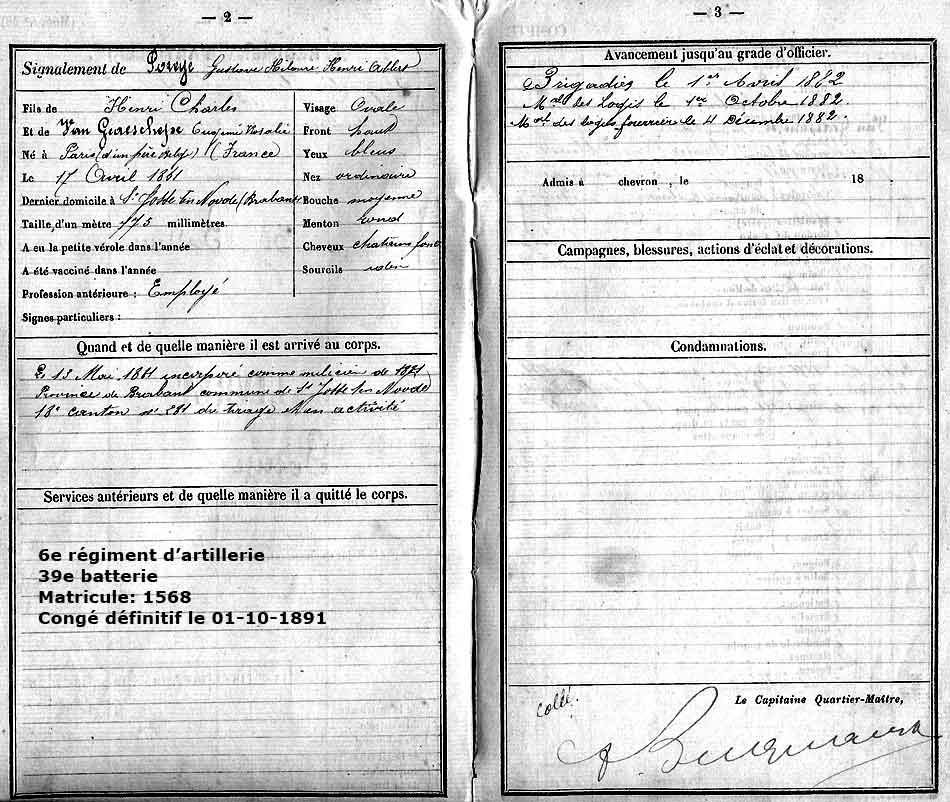 — 2 —
Signalement de Poreye Gustave Hilaire Henri Albert
Fils de Henri Charles
Et de Van Eugénie Rosalie
Né à Paris (d'un père Belge) (France)
Le 17 Avril 1861
Dernier domicile à St Josse ten Noode (Brabant
Taille d'un mètre 775 millimètres.
A eu la petite vérole dans l'année
A été vacciné dans l'année
Profession antérieure : Employé
Signes particuliers :
Visage Ovale
Front haut
Yeux bleus
Nez ordinaire
Bouche moyenne
Menton rond
Cheveux chatains foncé
Sourcils idem
Quand et de quelle manière il est arrivé au corps.
Le 13 Mai 1881 incorporé comme milicien de 1881
Province de Brabant commune de St Josse ten Noode
18e canton no 281 du tirage en activité
Services antérieurs et de quelle manière il a quitté le corps.
6e régiment d'artillerie
39e batterie
Matricule: 1568
Congé définitif le 01-10-1891
— 3 —
Avancement jusqu'au grade d'officier.
Brigadier le 1er Avril 1882
Mal des Logis le 1er Octobre 1882.
Mal des logis fourrier le 4 Décembre 1882.
Admis à chevron , le 18
Campagnes, blessures, actions d'éclat et décorations.
Condamnations.
Collé.
Le Capitaine Quartier-Maître,